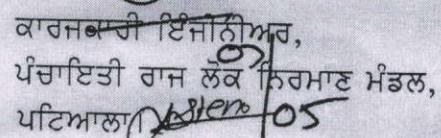 ਕਾਰਜਕਾਰੀ ਇੰਜੀਨੀਅਰ,
ਪੰਚਾਇਤੀ ਰਾਜ ਲੋਕ ਨਿਰਮਾਣ ਮੰਡਲ,
ਪਟਿਆਲਾ